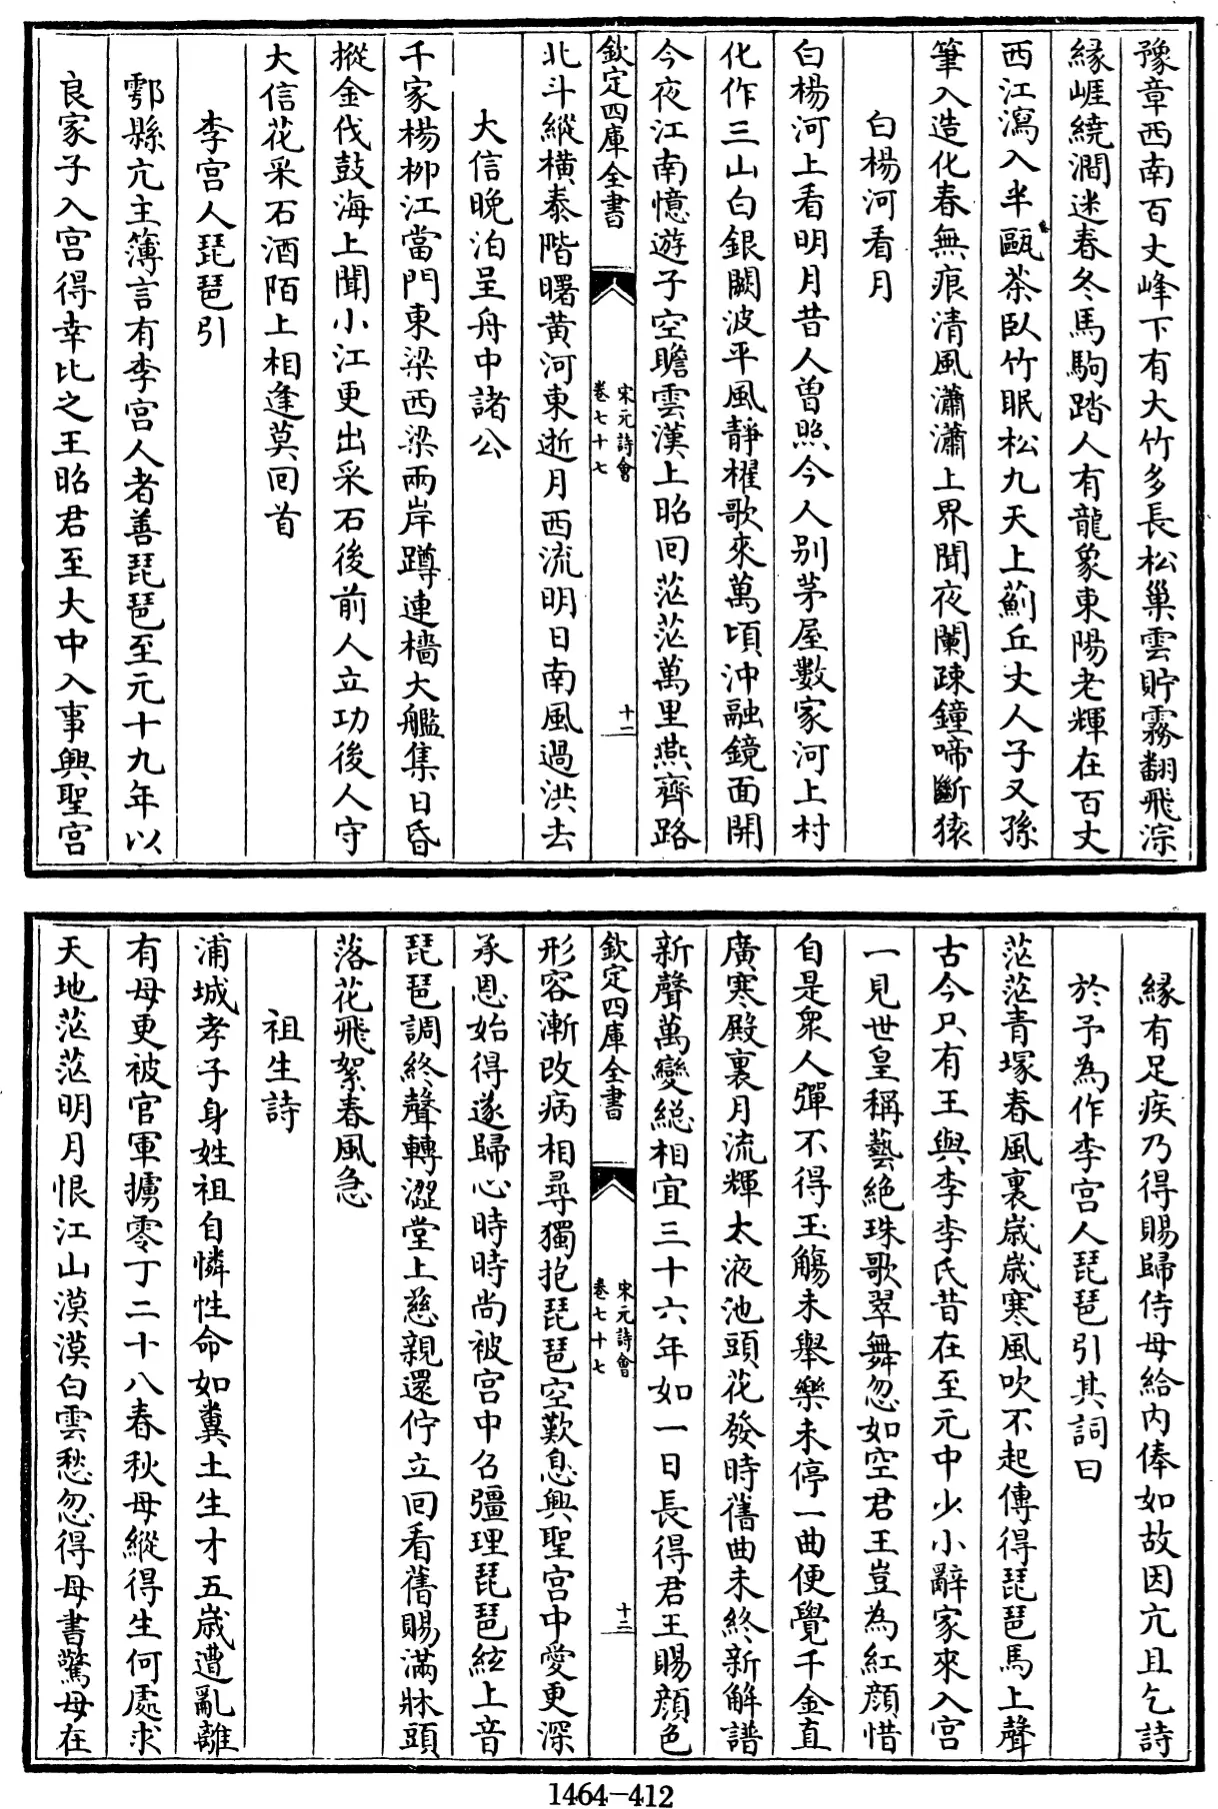 豫章西南百丈峰下有大竹多長松巢雲貯霧翻飛淙
縁崕繞澗迷春冬馬駒踏人有龍象東陽老輝在百丈
西江瀉入半甌茶臥竹眠松九天上薊丘丈人子又孫
筆入造化春無痕清風瀟瀟上界聞夜闌疎鐘啼斷猿
白楊河看月
白楊河上看明月昔人曾照今人别茅屋數家河上村
化作三山白銀闕波平風靜櫂歌來萬頃沖融鏡面開
今夜江南憶遊子空瞻雲漢上昭回茫茫萬里燕齊路
欽定四庫全書
宋元詩會
卷七十七
十二
北斗縱橫泰階曙黄河東逝月西流明日南風過洪去
大信晚泊呈舟中諸公
千家楊栁江當門東梁西梁兩岸蹲連檣大艦集日昏
摐金伐鼓海上聞小江更出采石後前人立功後人守
大信花采石酒陌上相逢莫回首
李宫人琵琶引
鄠縣亢主簿言有李宫人者善琵琶至元十九年以
良家子入宫得幸比之王昭君至大中入事興聖宫
縁有足疾乃得賜歸侍母給内俸如故因亢且乞詩
於予為作李宫人琵琶引其詞曰
茫茫青塚春風裏歲歲寒風吹不起傳得琵琶馬上聲
古今只有王與李李氏昔在至元中少小辭家來入宫
一見世皇稱藝絶珠歌翠舞忽如空君王豈為紅顔惜
自是衆人彈不得玉觴未舉樂未停一曲便覺千金直
廣寒殿裏月流輝太液池頭花發時舊曲未終新解譜
新聲萬變總相宜三十六年如一日長得君王賜顔色
欽定四庫全書
宋元詩會
卷七十七
十二
形容漸改病相尋獨抱琵琶空歎息興聖宫中愛更深
承恩始得遂歸心時時尚被宫中召彊理琵琶絃上音
琵琶調終聲轉澀堂上慈親還佇立回看舊賜滿牀頭
落花飛絮春風急
祖生詩
浦城孝子身姓祖自憐性命如糞土生才五歲遭亂離
有母更被官軍擄零丁二十八春秋母縱得生何處求
天地茫茫明月恨江山漠漠白雲愁忽得母書驚母在
1464-412